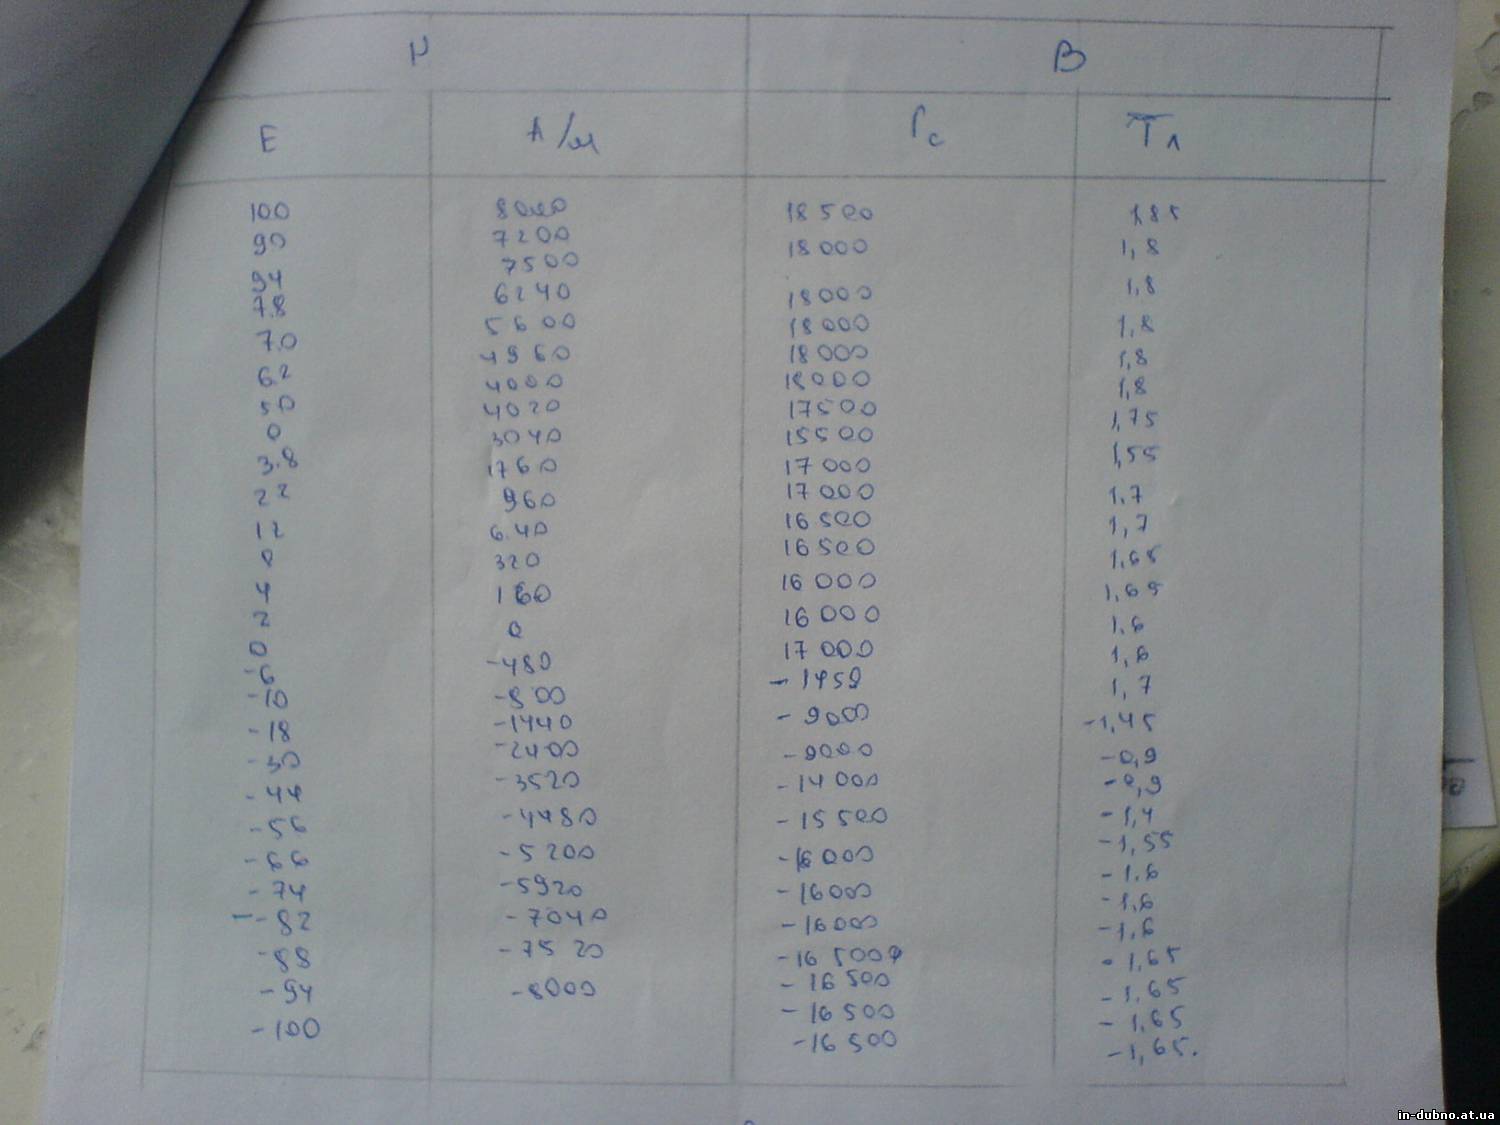 H B
E А/м Гс Тл
100 8000 18500 1,85
90 7200 18000 1,8
94 7500 18000 1,8
78 6240 18000 1,8
70 5600 18000 1,8
62 4960 18000 1,8
50 4000 17500 1,75
0 4020 15500 1,55
38 3040 17000 1,7
22 1760 17000 1,7
12 960 16500 1,65
8 640 16500 1,65
4 320 16000 1,6
2 160 16000 1,6
0 0 17000 1,7
-6 -480 -1459 -1,45
-10 -800 -9000 -0,9
-18 -1440 -9000 -0,9
-30 -2400 -14000 -1,4
-44 -3520 -15500 -1,55
-56 -4480 -16000 -1.6
-66 -5200 -16000 -1.6
-74 -5920 -16000 -1,6
-82 -7040 -16500 -1,65
-88 -7520 -16500 -1,65
-94 -8000 -16500 -1,65
-100 -16500 -1,65.
in-dubno.at.ua